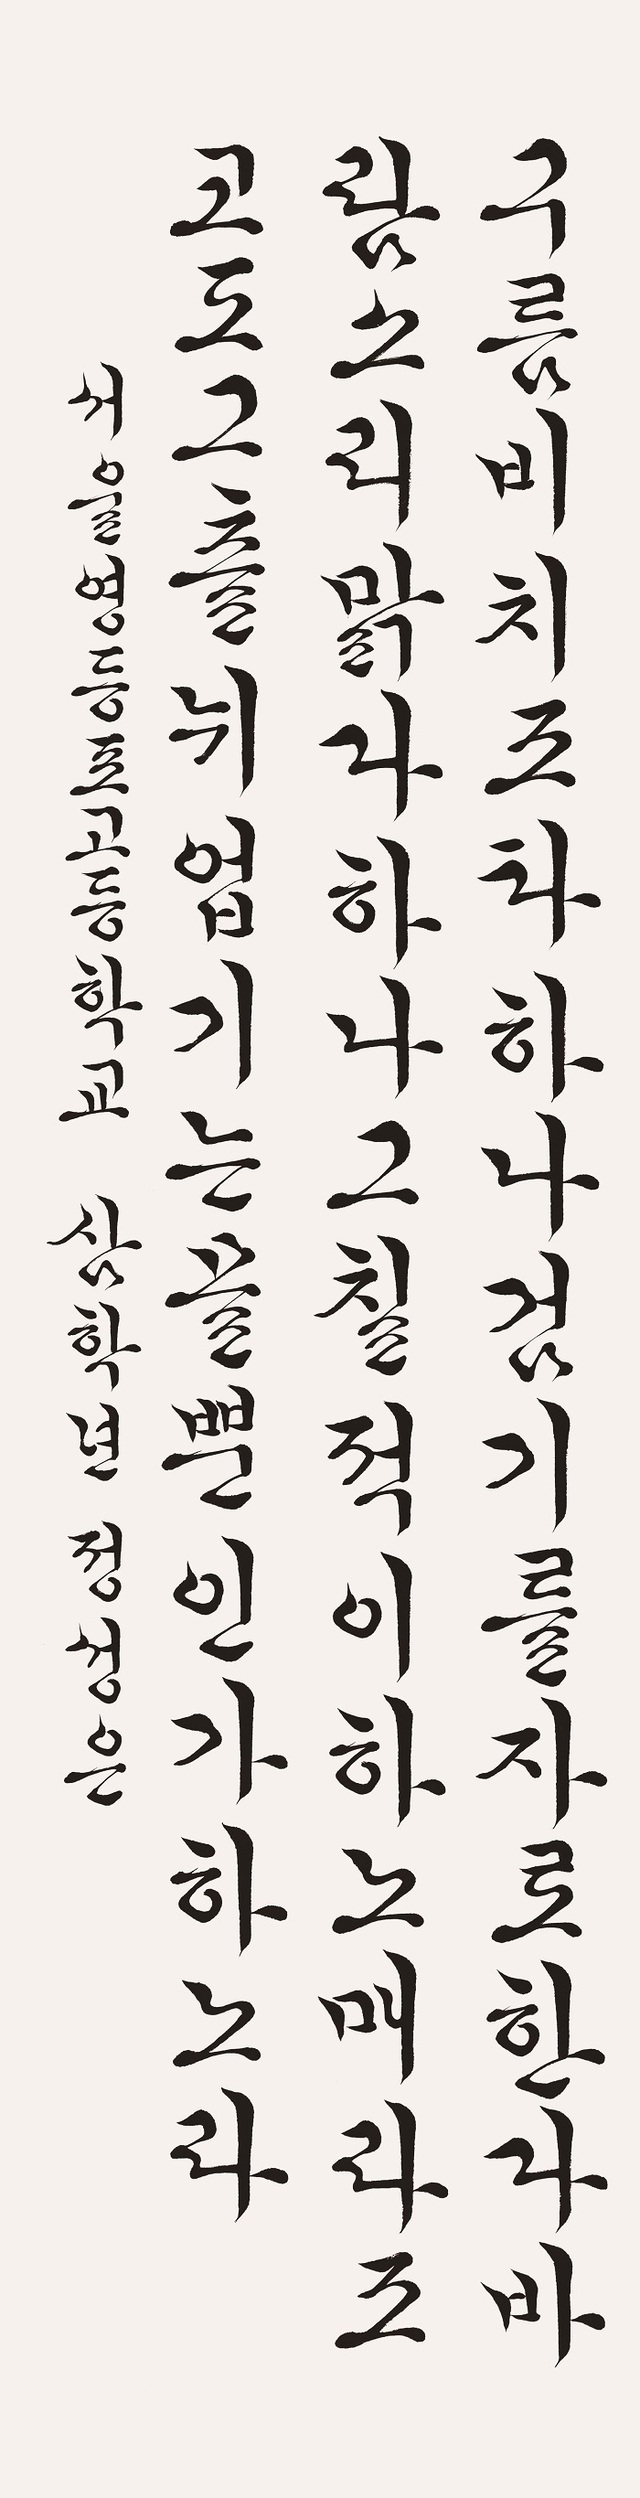 구름비치조타하나검기를자로한다바
람소리맑다하나그칠적이하노매라조
코도그츨뉘업기는믈뿐인가하노라
서울영등포고등학교 삼학년